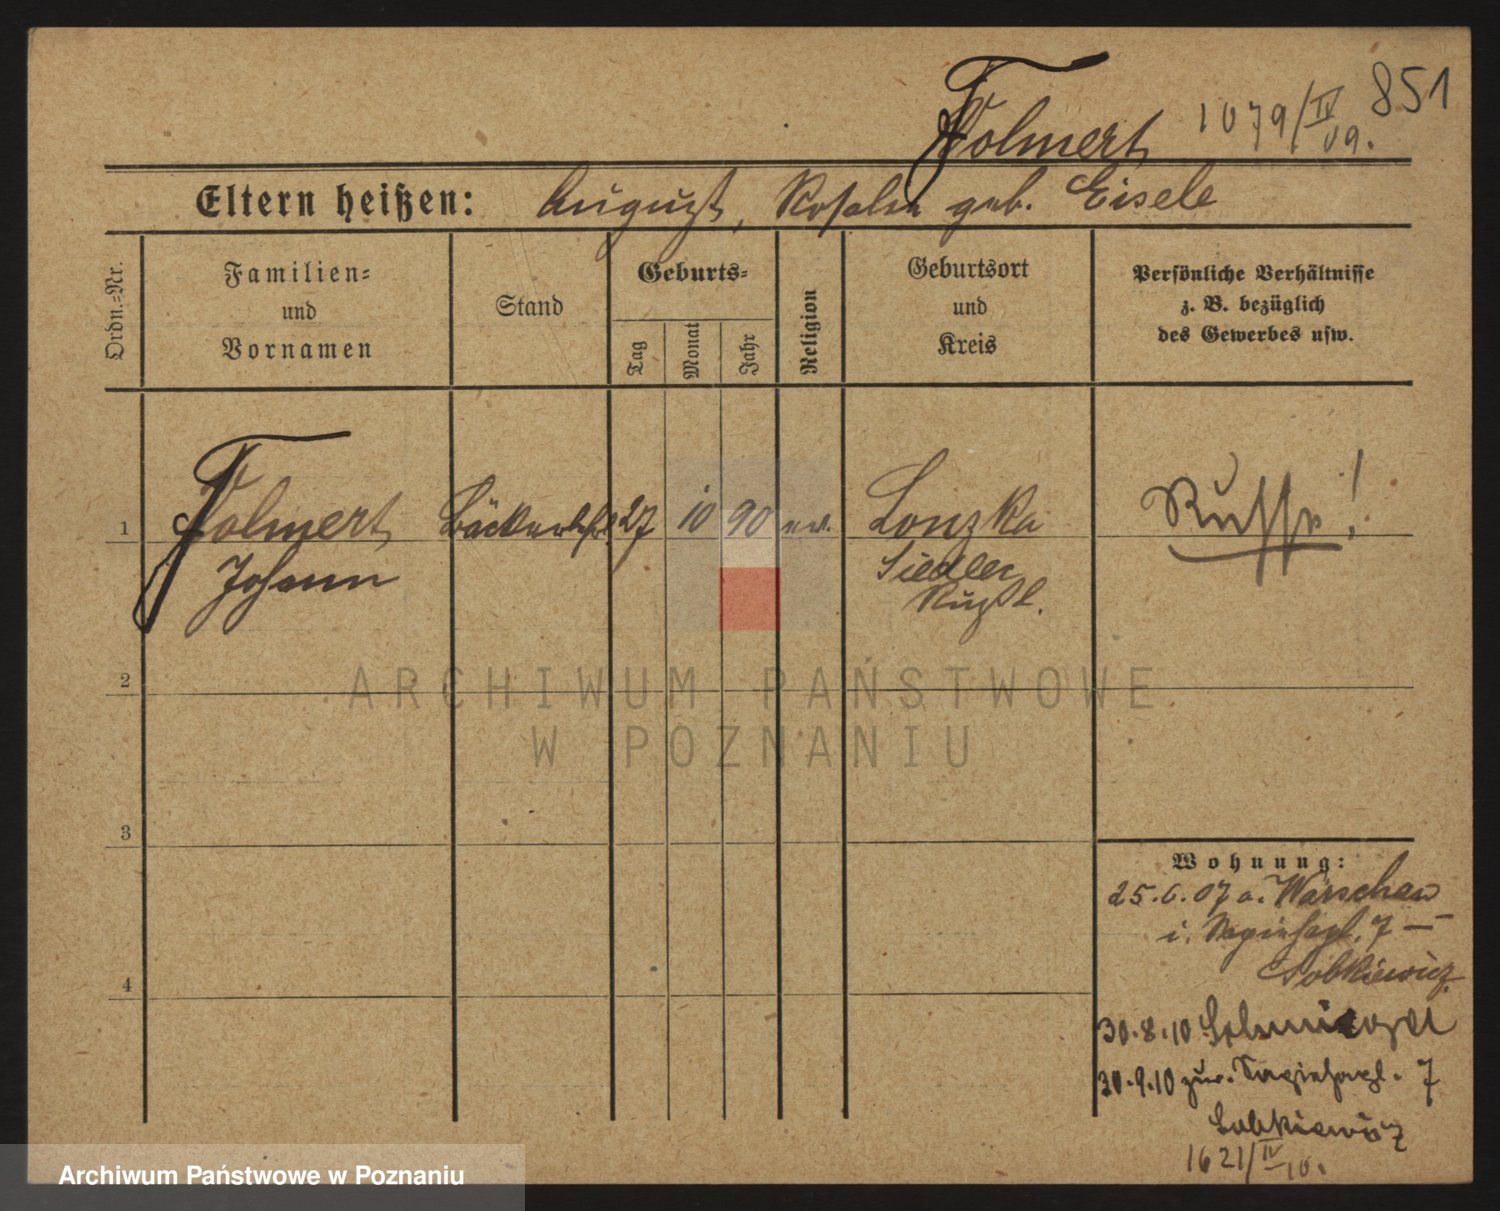 Folmert 1079/IV 09. 851
Eltern heißen: August, Rosalie geb. Eisele
Ordn.=Nr.
Familien=
und
Vornamen
Stand
Geburts=
Tag
Monat
Jahr
Religion
Geburtsort
und
Kreis
Persönliche Verhältnisse
z. B. bezüglich
des Gewerbes usw.
1 Folmert Bäckerlehrl. 27 10 90 ev. Lonzka Russe!
Johann Siedlec
Rußl.
2
3
4
Wohnung:
25.6.07 a. Warschau
i. 7 –
Sobkiewicz
30.8.10
30.9.10 zur. 7
Sobkiewicz
1621/IV 10.
ARCHIWUM PAŃSTWOWE
W POZNANIU
Archiwum Państwowe w Poznaniu